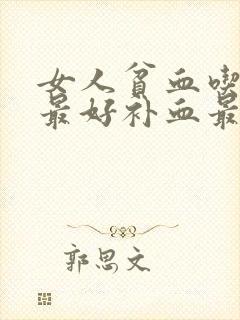 女人贫血喫
最好补血最
郭思文